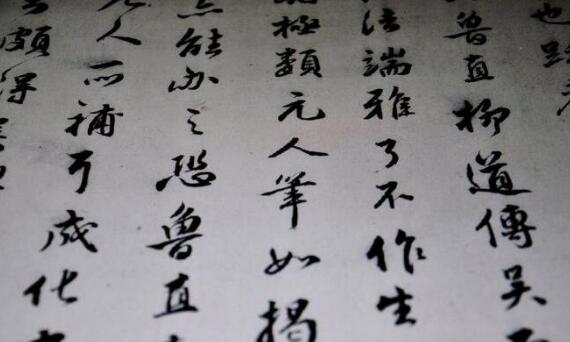 也
魯直柳道傳吳
法端雅了不作生
極類元人筆如揭
能之恐魯直
人所補成化
頗得